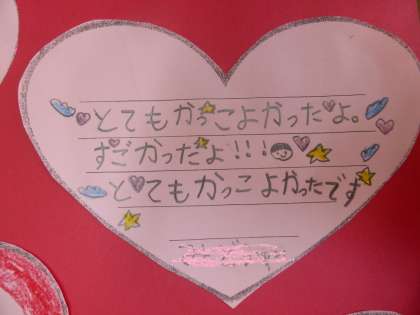 とてもかっこよかったよ。
すごかったよ!!!
とてもかっこよかったです